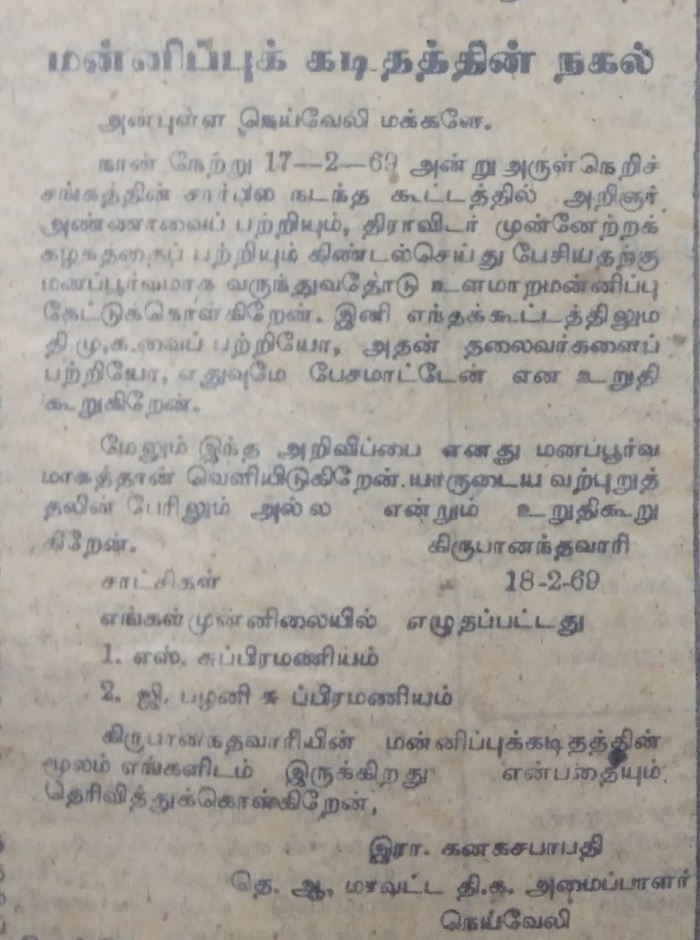 மன்னிப்புக் கடிதத்தின் நகல்
அன்புள்ள நெய்வேலி மக்களே.
நான் நேற்று 17—2—69 அன்று அருள்நெறிச்
சங்கத்தின் சார்பில நடந்த கூட்டத்தில் அறிஞர்
அண்ணாவைப் பற்றியும், திராவிடர் முன்னேற்றக்
கழகத்தைப் பற்றியும் கிண்டல்செய்து பேசியதற்கு
மனப்பூர்வமாக வருந்துவதோடு உளமாறமன்னிப்பு
கேட்டுக்கொள்கிறேன். இனி எந்தக்கூட்டத்திலும
தி.மு.க.வைப் பற்றியோ, அதன் தலைவர்களைப்
பற்றியோ, எதுவுமே பேசமாட்டேன் என உறுதி
கூறுகிறேன்.
மேலும் இந்த அறிவிப்பை எனது மனப்பூர்வ
மாகத்தான் வெளியிடுகிறேன். யாருடைய வற்புறுத்
தலின் பேரிலும் அல்ல என்றும் உறுதிகூறு
கிறேன். கிருபானந்தவாரி
சாட்சிகள் 18-2-69
எங்கள்முன்னிலையில் எழுதப்பட்டது
1. எஸ். சுப்பிரமணியம்
2. ஜி. பழனி சு ப்பிரமணியம்
கிருபானநதவாரியின் மன்னிப்புக்கடிதத்தின்
மூலம் எங்களிடம் இருக்கிறது என்பதையும்
தெரிவித்துக்கொள்கிறேன்,
இரா. கனகசபாபதி
தெ. ஆ, மாவட்ட தி.க. அமைப்பாளர்
நெய்வேலி